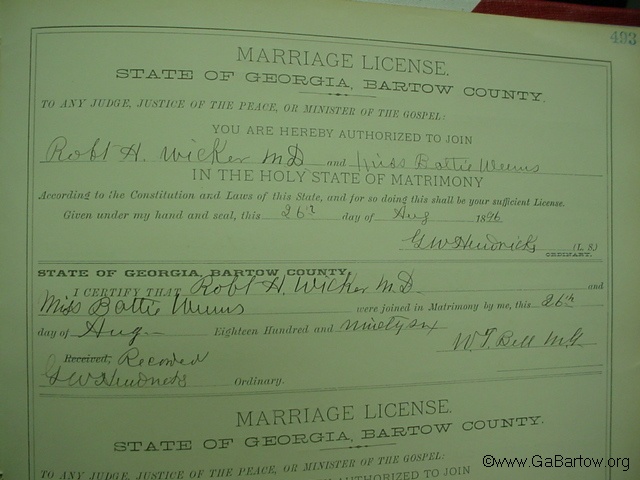 493
MARRIAGE LICENSE.
STATE OF GEORGIA, BARTOW COUNTY.
TO ANY JUDGE, JUSTICE OF THE PEACE, OR MINISTER OF THE GOSPEL:
YOU ARE HEREBY AUTHORIZED TO JOIN
Robt H. Wicker M D and Miss Battie Weems
IN THE HOLY STATE OF MATRIMONY
According to the Constitution and Laws of this State, and for so doing this shall be your sufficient License.
Given under my hand and seal, this 26th day of Aug 1896
G W Hendricks (L. S.)
ORDINARY.
STATE OF GEORGIA, BARTOW COUNTY,
I CERTIFY THAT Robt H. Wicker M. D. and
Miss Battie Weems were joined in Matrimony by me, this 26th
day of Aug Eighteen Hundred and ninety six
W. T. Bell M. G.
Received, Recorded
G W Hendricks Ordinary.
MARRIAGE LICENSE.
STATE OF GEORGIA, BARTOW COUNTY.
TO ANY JUDGE, JUSTICE OF THE PEACE, OR MINISTER OF THE GOSPEL:
AUTHORIZED TO JOIN
©www.GaBartow.org